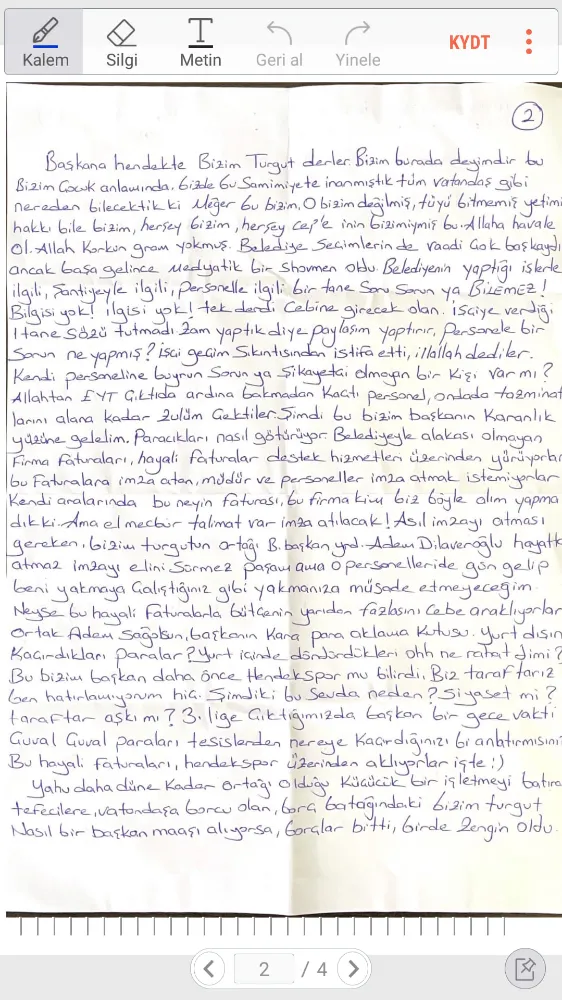 Kalem
Silgi
Metin
Geri al
Yinele
KYDT
2
Başkana hendekte Bizim Turgut derler. Bizim burada deyimdir bu
Bizim Çocuk anlamında. bizde bu Samimiyete inanmıştık tüm vatandaş gibi
nereden bilecektik ki Meğer bu bizim, O bizim değilmiş, tüyü bitmemiş yetimi
hakkı bile bizim, herşey bizim, herşey cep'e inin bizimiymiş bu. Allaha havale
Ol. Allah Korkun gram yokmuş. Belediye Seçimlerin de vaadi Çok başkaydı
ancak başa gelince Medyatik bir shovmen oldu. Belediyenin yaptığı işlerle
ilgili, Şantiyeyle ilgili, personelle ilgili bir tane Soru Sorun ya BİLEMEZ!
Bilgisi yok! ilgisi yok! tek derdi Cebine girecek olan. işçiye verdiği
1 tane Sözü tutmadı. Zam yaptık diye paylaşım yaptırır, Personele bir
Sorun ne yapmış? işçi geçim Sıkıntısından istifa etti, illallah dediler.
Kendi personeline buyrun Sorun ya Şikayetçi olmayan bir Kişi var mı?
Allahtan EYT Çıktıda ardına bakmadan Kaçtı personel, ondada tazminat
larını alana kadar zulüm Çektiler. Şimdi bu bizim başkanın Karanlık
yüzüne gelelim. Paracıkları nasıl götürüyor. Belediyeyle alakası olmayan
Firma Faturaları, hayali faturalar destek hizmetleri üzerinden yürüyorlar
bu Faturalara imza atan, müdür ve personeller imza atmak istemiyorlar
Kendi aralarında bu neyin faturası, bu firma kim biz böyle alım yapma
dık ki. Ama el mecbur talimat var imza atılacak! Asıl imzayı atması
gereken, bizim turgutun ortağı B. başkan yrd. Adem Dilaveroğlu hayatta
atmaz imzayı elini Sürmez paşam ama O personelleride gün gelip
beni yakmaya Çalıştığınız gibi yakmanıza müsade etmeyeceğim.
Neyse bu hayali Faturalarla bütçenin yarıdan fazlasını Cebe araklıyorlar
Ortak Adem Sağolsun, başkanın Kara para aklama Kutusu. Yurt dışın
Kaçırdıkları paralar? Yurt içinde döndürdükleri ohh ne rahat dimi?
Bu bizim başkan daha önce Hendekspor mu bilirdi. Biz taraftarız
ben hatırlamıyorum hiç. Şimdiki bu Sevda neden? Siyaset mi?
taraftar aşkı mı? 3. lige Çıktığımızda başkan bir gece vakti
Çuval Çuval paraları tesislerden nereye Kaçırdığınızı bi anlatırmısınız
Bu hayali faturaları, hendekspor üzerinden aklıyorlar işte :)
Yahu daha düne Kadar ortağı Olduğu Küçücük bir işletmeyi batıra
tefecilere, vatandaşa borcu olan, borç batağındaki bizim turgut
Nasıl bir başkan maaşı alıyorsa, borçlar bitti, birde Zengin oldu.
2 / 4